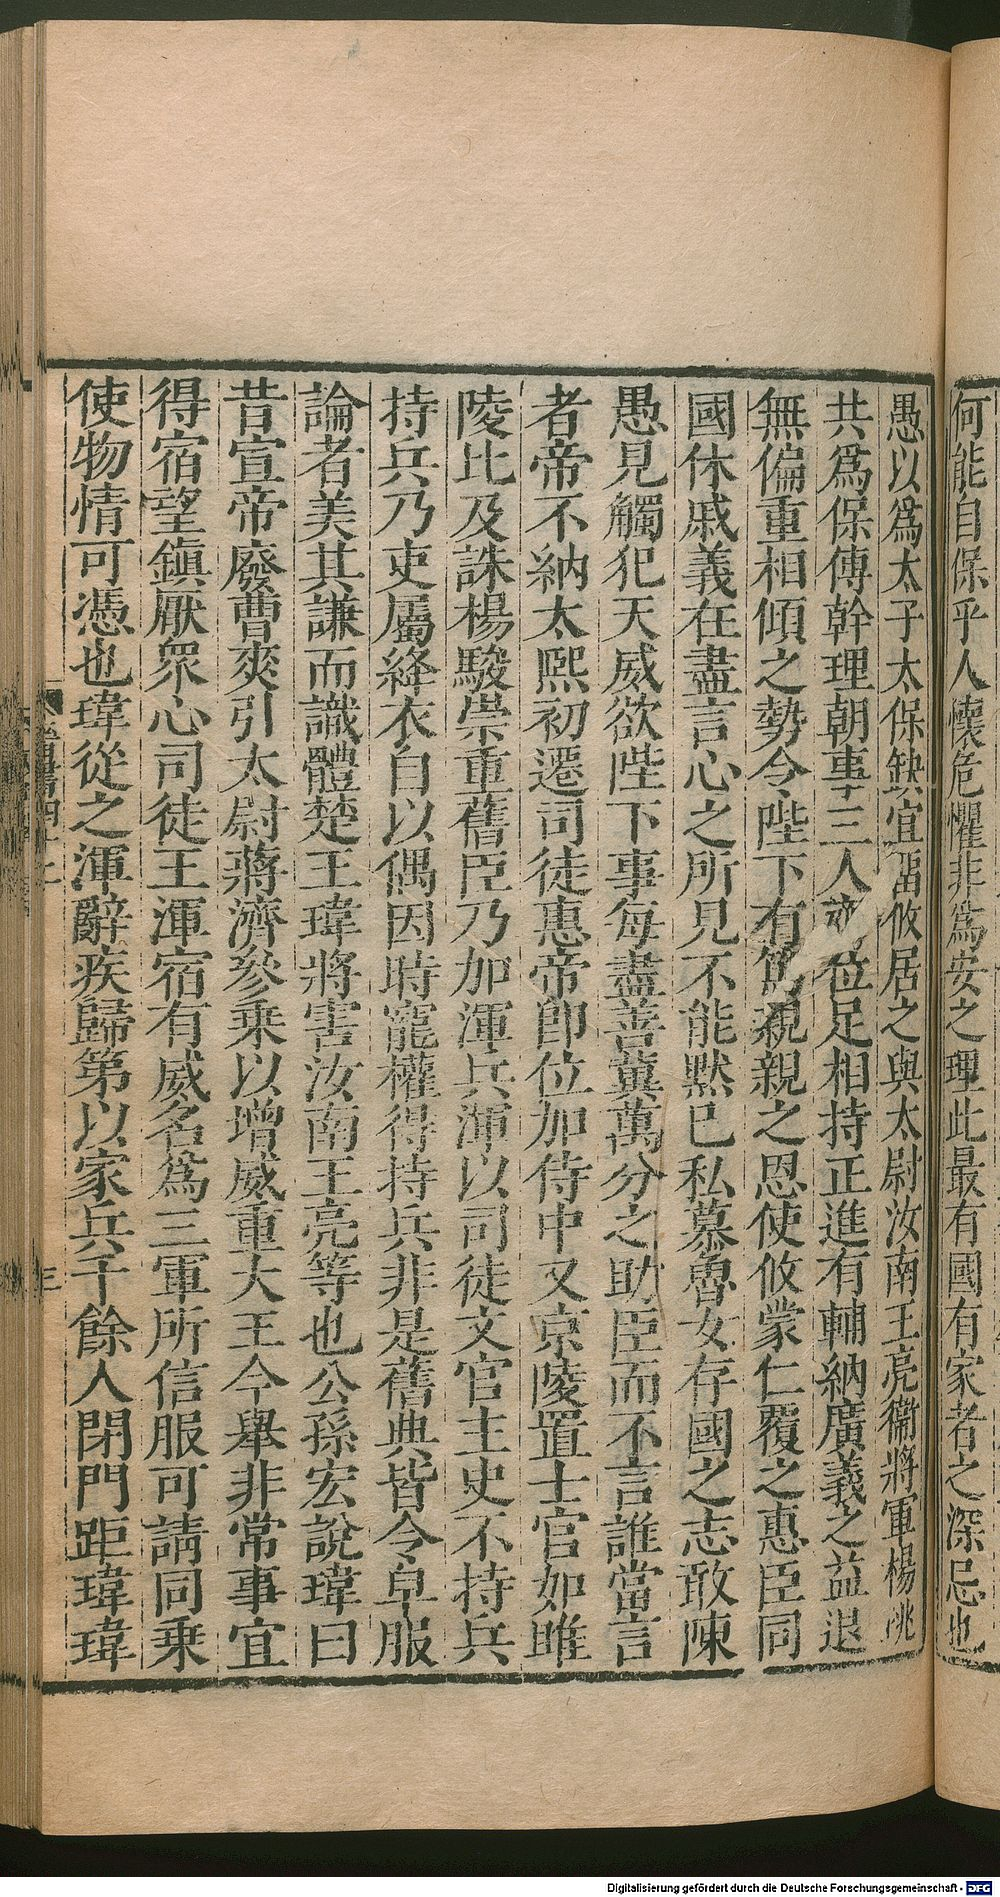 何能自保乎人懷危懼非爲安之理此最有國有家者之深忌也
愚以爲太子太保缺宜留攸居之與太尉汝南王亮衞將軍楊珧
共爲保傅幹理朝事三人齊位足相持正進有輔納廣義之益退
無偏重相傾之勢令陛下有篤親親之恩使攸蒙仁覆之惠臣同
國休戚義在盡言心之所見不能默已私慕魯女存國之志敢陳
愚見觸犯天威欲陛下事每盡善冀萬分之助臣而不言誰當言
者帝不納太熙初遷司徒惠帝卽位加侍中又京陵置士官如睢
陵比及誅楊駿崇重舊臣乃加渾兵渾以司徒文官主史不持兵
持兵乃吏屬絳衣自以偶因時寵權得持兵非是舊典皆令皁服
論者美其謙而識體楚王瑋將害汝南王亮等也公孫宏說瑋曰
昔宣帝廢曹爽引太尉蔣濟參乗以增威重大王今舉非常事宜
得宿望鎭厭衆心司徒王渾宿有威名爲三軍所信服可請同乗
使物情可憑也瑋從之渾辭疾歸第以家兵千餘人閉門距瑋瑋
Digitalisierung gefördert durch die Deutsche Forschungsgemeinschaft - DFG